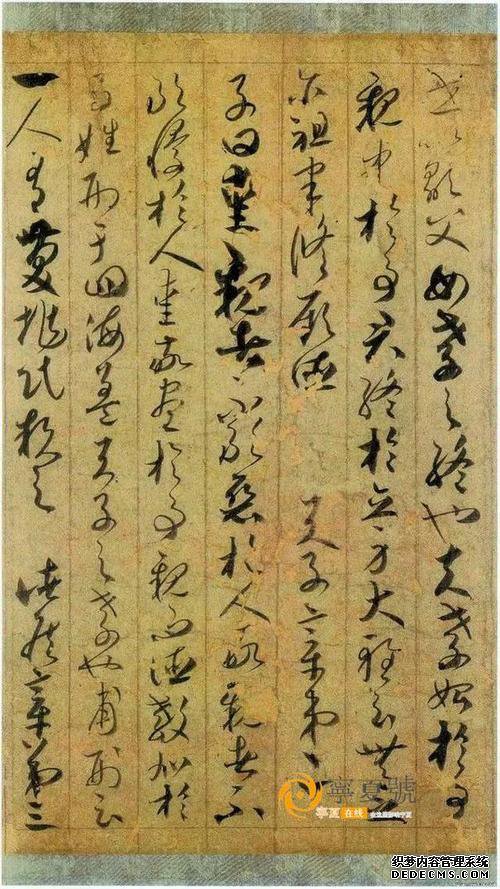 世以顯父母孝之終也夫孝始於事
親中於事君終於立身大雅云無念
尔祖聿脩厥德 天子章第二
子曰愛親者不敢惡於人敬親者不
敢慢於人愛敬盡於事親而德教加於
百姓刑于四海蓋天子之孝也甫刑云
一人有慶兆民賴之 諸侯章第三
寧夏號
寧夏在线
织梦内容管理系统
DEDECMS.COM